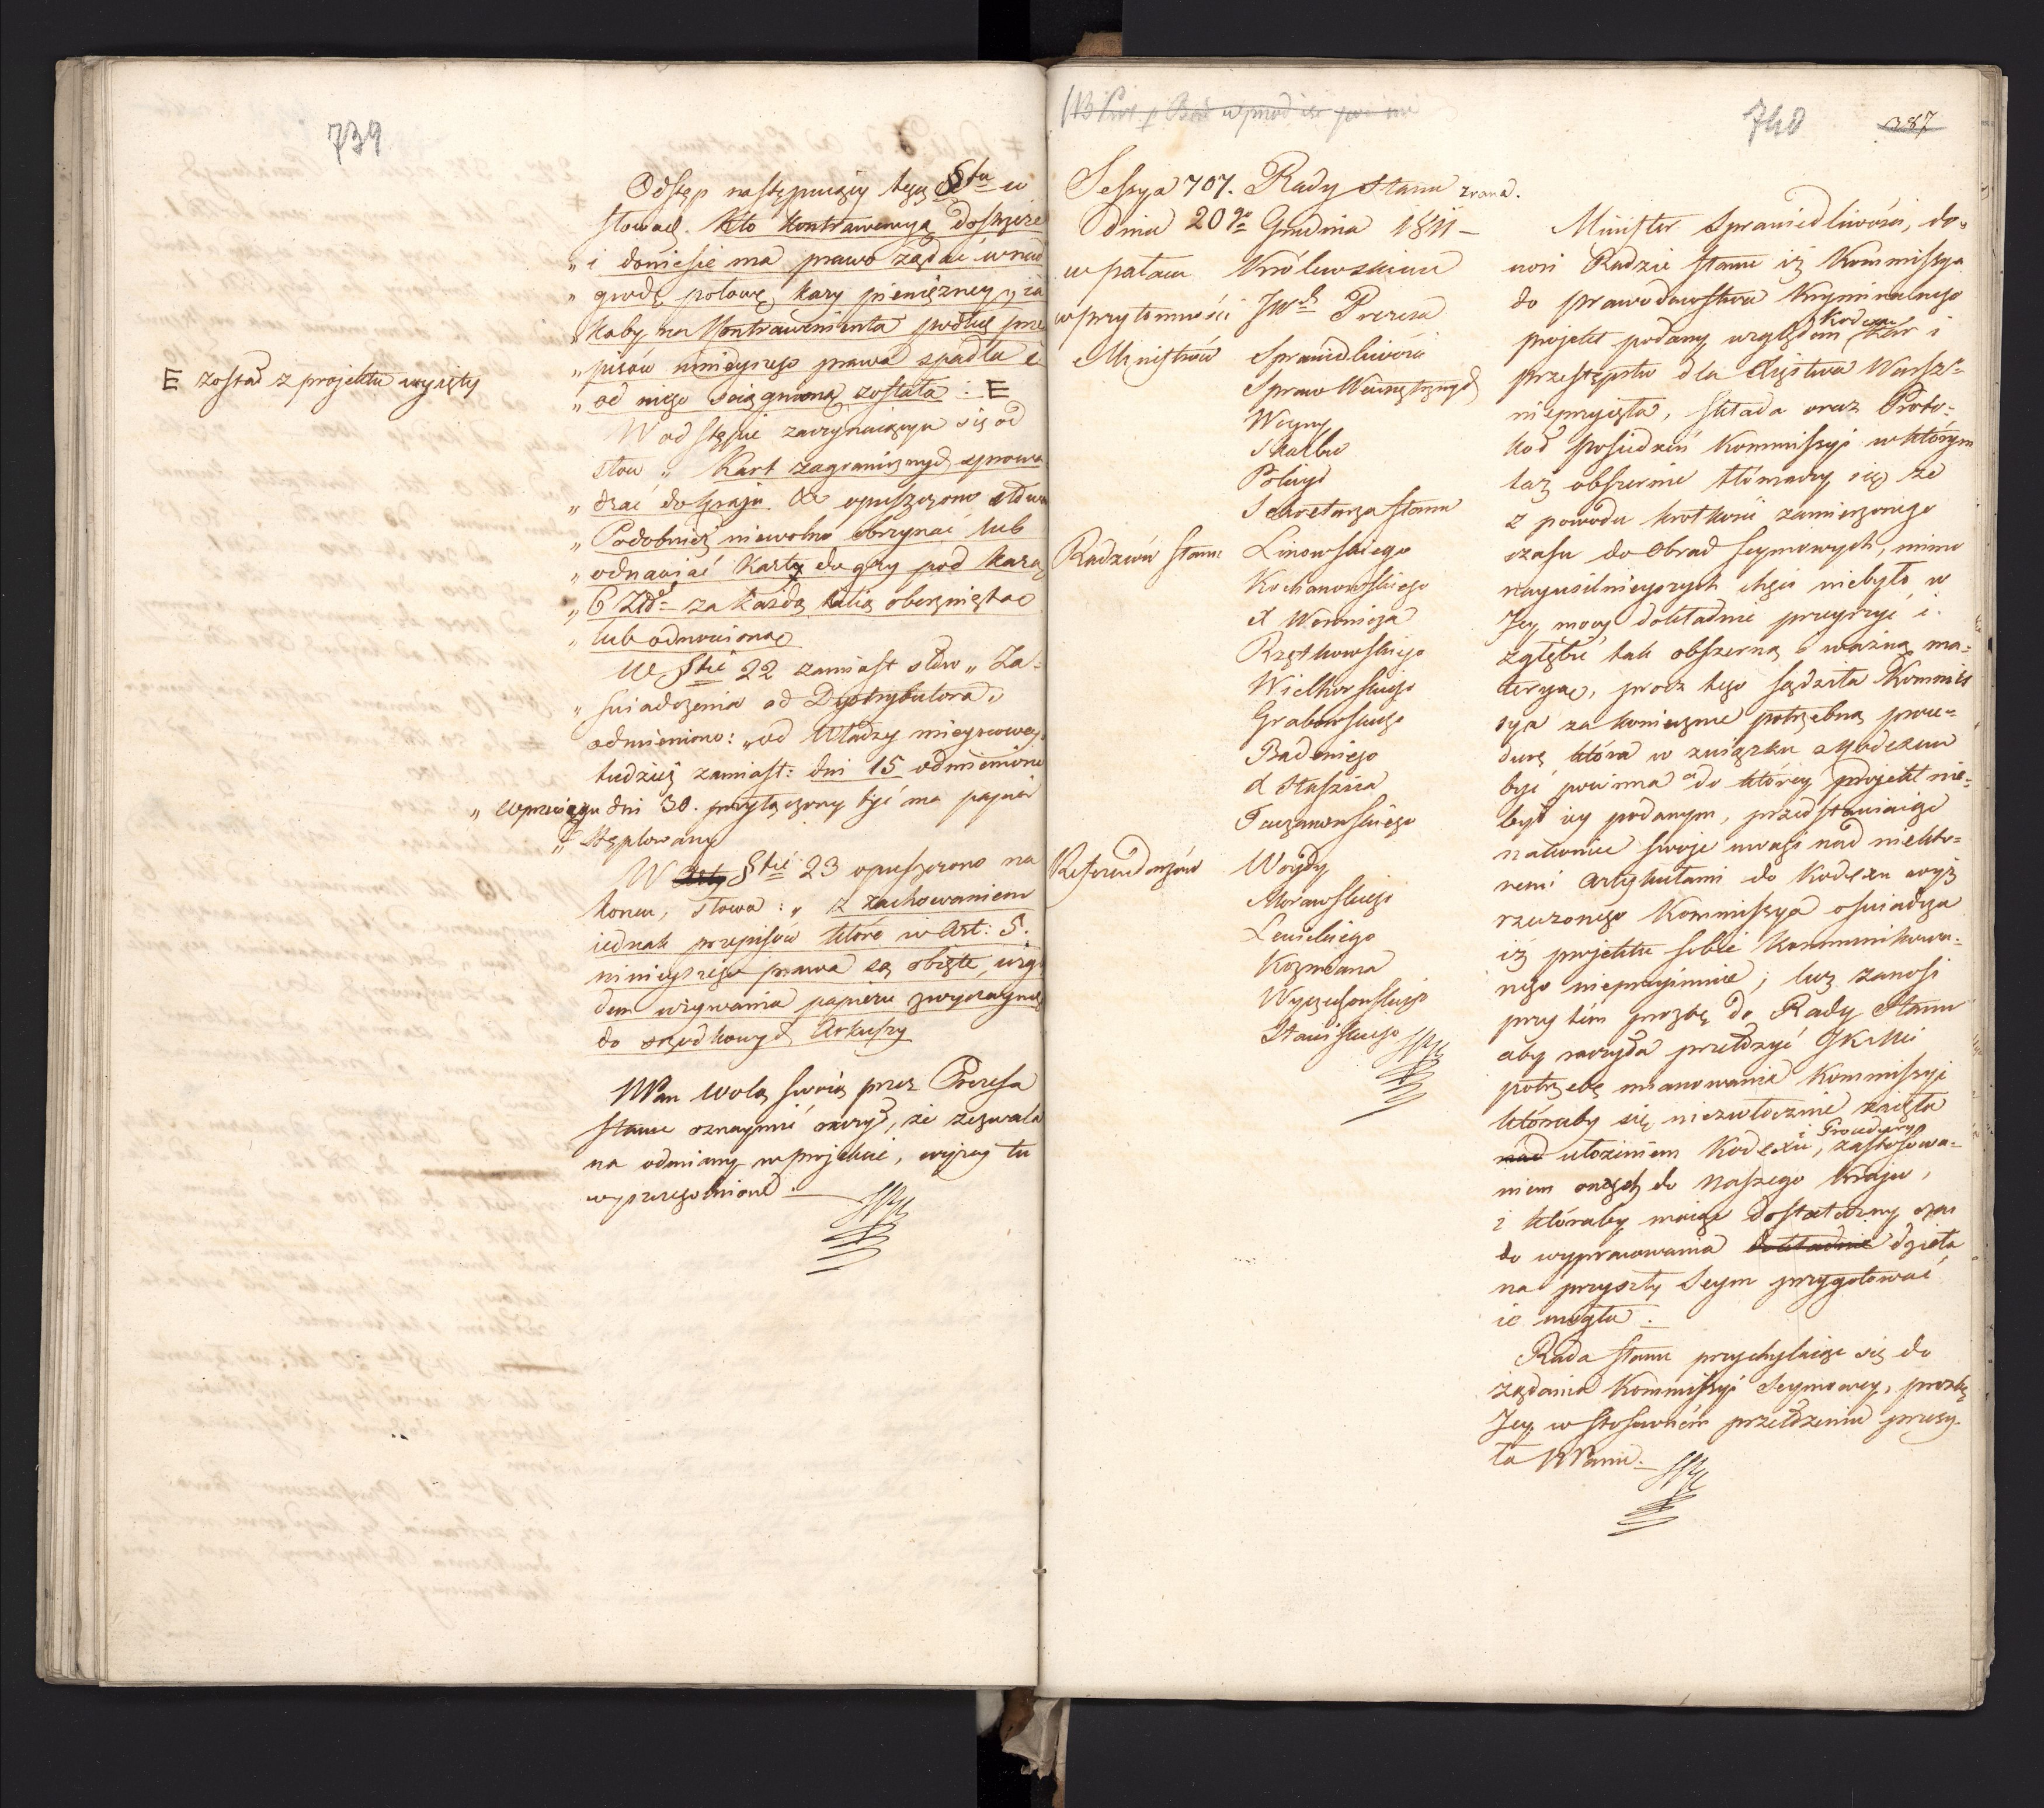 739
Odstęp następuiący tego §tu w
słowach. Kto kontrawencyą dostrzeże
„ i doniesie ma prawo żądać w nad
„ grodę połowę kary pieniężney, ia
„ kaby na Kontrawenienta podług prze
„ pisów ninieyszego prawa spadła a
„ od niego sciągnioną została : E
E został z projektu wyięty
W odstępie zaczynaiącym się od
słow „ Kart zagranicznych sprowa
„ dzać do kraju &c opuszczono słowa
„ Podobnież niewolno obrzynać lub
„ odnawiać Karty do gry pod karą
„ 6 Złł za każdą talią oberzniętą
„ lub odnowioną
W §cie 22 zamiast słów „ Za-
„ swiadczenia od Dystrybutora „
odmieniono: „ od Władzy mieyscowey
tudzież zamiast: dni 15 odmieniono
„ wprzeciągu dni 30. przyłączony być ma papier
„ stęplowany
W Arty §cie 23 opuszczono na
koncu, słowa : „ z zachowaniem
iednak przepisów które w Art: 5.
ninieyszego prawa są obięte, wzglę
dem używania papieru zwyczaynego
do srzodkowych Arkuszy
NPan wolą swoią przez Prezesa
stanu oznaymić raczył, że zezwala
na odmiany w projekcie, wyżey tu
wyszczególnione.
740
387
Sessya 707. Rady Stanu zrana.
dnia 20go Grudnia 1811 –
w pałacu Królewskim
w przytomności JW Prezesa
Ministrów Sprawiedliwości
Spraw Wewnętrznych
Woyny
Skarbu
Policyi
Sekretarza Stanu
Radzców Stanu Linowskiego
Kochanowskiego
X Woronicza
Rzętkowskiego
Wielhorskiego
Grabowskiego
Badeniego
X Staszica
Taczanowskiego
Referendarzów Woydy
Morawskiego
Lewickiego
Kozmiana
Wyczechowskiego
Stawiskiego
Minister Sprawiedliwości, do-
nosi Radzie Stanu iż Kommissya
do prawodawstwa kryminalnego
projekt podany względem Kodexu Kar i
przestępstw dla Xięstwa Warsz
nieprzyięła, składa oraz Proto-
koł posiedzeń Kommissyi w którym
taż obszernie tłómaczy się że
z powodu krotkości zamierzonego
czasu do Obrad Seymowych, mimo
nayusilnieyszych chęci niebyło w
Jey mocy dokładnie przeyrzyć i
zgłębić tak obszerną i ważną ma-
teryą, procz tego sądziła Kommis
sya za konieczne potrzebną proce-
durę która w związku z Kodexem
być powinna a do którey projekt nie-
był iey podanym, przedstawiaiąc
nakoniec swoje uwagi nad niektó-
remi artykułami do Kodexu wyż
rzeczonego Kommissya oswiadcza
iż projektu sobie kommunikowa-
nego nieprzyimuie; lecz zanosi
przy tém prozbę do Rady Stanu
aby raczyła przełożyć JKMci
potrzebę mianowania Kommissyi
któraby się niezwłocznie zaięła
nad ułożeniem Kodexu, i Procedury zastosowa-
niem onych do naszego kraju,
i któraby maiąc dostateczny czas
do wypracowania dokładnie dzieła
na przyszły Seym przygotować
ie mogła.
Rada Stanu przychylaiąc się do
żądania Kommissyi Seymowey, prozbę
Jey w stosownem przełożeniu przesy-
ła NPanu.